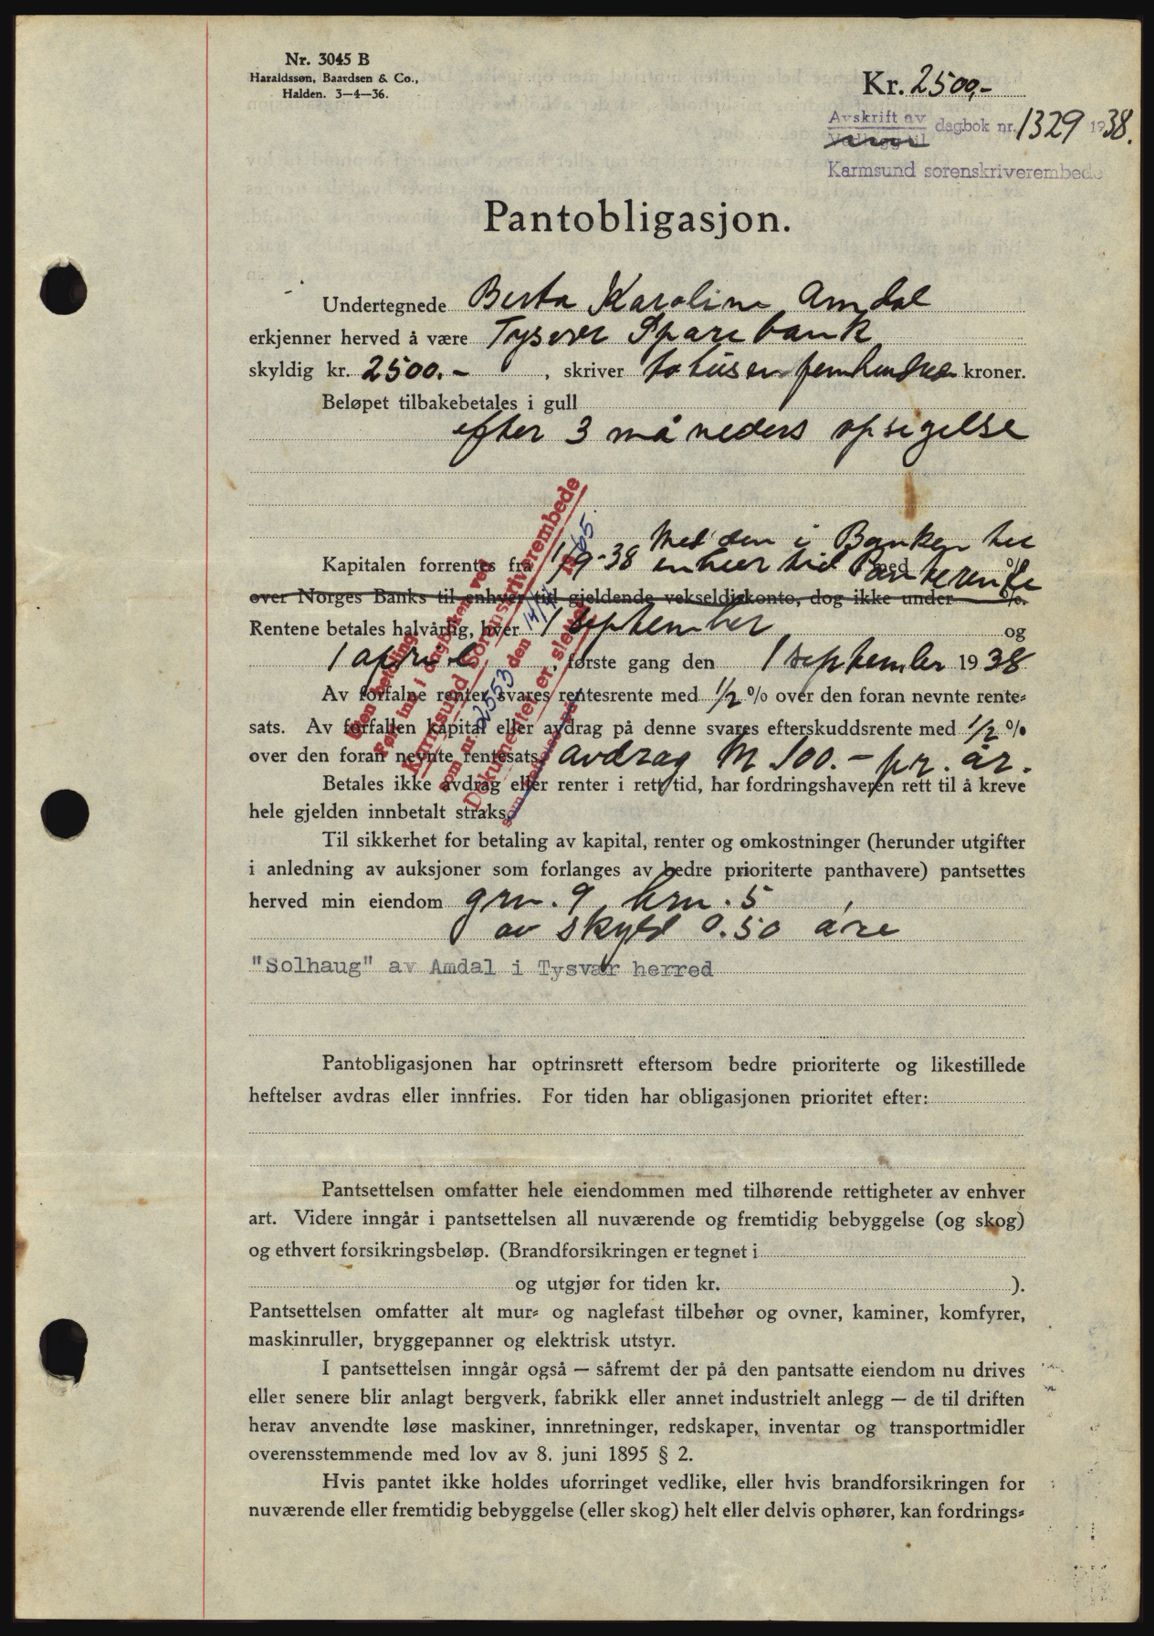 Nr. 3045 B
Haraldssøn, Baardsen & Co.,
Halden. 3—4—36.
Kr. 2500,-
Avskrift av
Vedlegg til
dagbok nr. 1329 1938.
Karmsund sorenskriverembede
Pantobligasjon.
Undertegnede Berta Karoline Amdal
erkjenner herved å være Tysvær Sparebank
skyldig kr. 2500.- , skriver totusenfemhundre kroner.
Beløpet tilbakebetales i gull
efter 3 måneders opsigelse
Med den i Banken til
Kapitalen forrentes fra 1/9-38 enhver tid med Bankrente %
over Norges Banks til enhver tid gjeldende vekseldiskonto, dog ikke under %.
Rentene betales halvårlig, hver 1 september og
1 april , første gang den 1 september 1938
Av forfalne renter svares rentesrente med 1/2 % over den foran nevnte rente=
sats. Av forfallen kapital eller avdrag på denne svares efterskuddsrente med 1/2 %
over den foran nevnte rentesats. avdrag kr 100.- pr. år.
Betales ikke avdrag eller renter i rett tid, har fordringshaveren rett til å kreve
hele gjelden innbetalt straks.
Uten betaling
Ført inn i dagboken ved
Karmsund Sorenskriverembede
som nr. 2553 den 14/12 1965.
Dokumentet er slettet
Til sikkerhet for betaling av kapital, renter og omkostninger (herunder utgifter
i anledning av auksjoner som forlanges av bedre prioriterte panthavere) pantsettes
herved min eiendom grn. 9, brn. 5
av skyld 0.50 øre
"Solhaug" av Amdal i Tysvær herred
Pantobligasjonen har optrinsrett eftersom bedre prioriterte og likestillede
heftelser avdras eller innfries. For tiden har obligasjonen prioritet efter:
Pantsettelsen omfatter hele eiendommen med tilhørende rettigheter av enhver
art. Videre inngår i pantsettelsen all nuværende og fremtidig bebyggelse (og skog)
og ethvert forsikringsbeløp. (Brandforsikringen er tegnet i
og utgjør for tiden kr. ).
Pantsettelsen omfatter alt mur= og naglefast tilbehør og ovner, kaminer, komfyrer,
maskinruller, bryggepanner og elektrisk utstyr.
I pantsettelsen inngår også — såfremt der på den pantsatte eiendom nu drives
eller senere blir anlagt bergverk, fabrikk eller annet industrielt anlegg — de til driften
herav anvendte løse maskiner, innretninger, redskaper, inventar og transportmidler
overensstemmende med lov av 8. juni 1895 § 2.
Hvis pantet ikke holdes uforringet vedlike, eller hvis brandforsikringen for
nuværende eller fremtidig bebyggelse (eller skog) helt eller delvis ophører, kan fordrings=